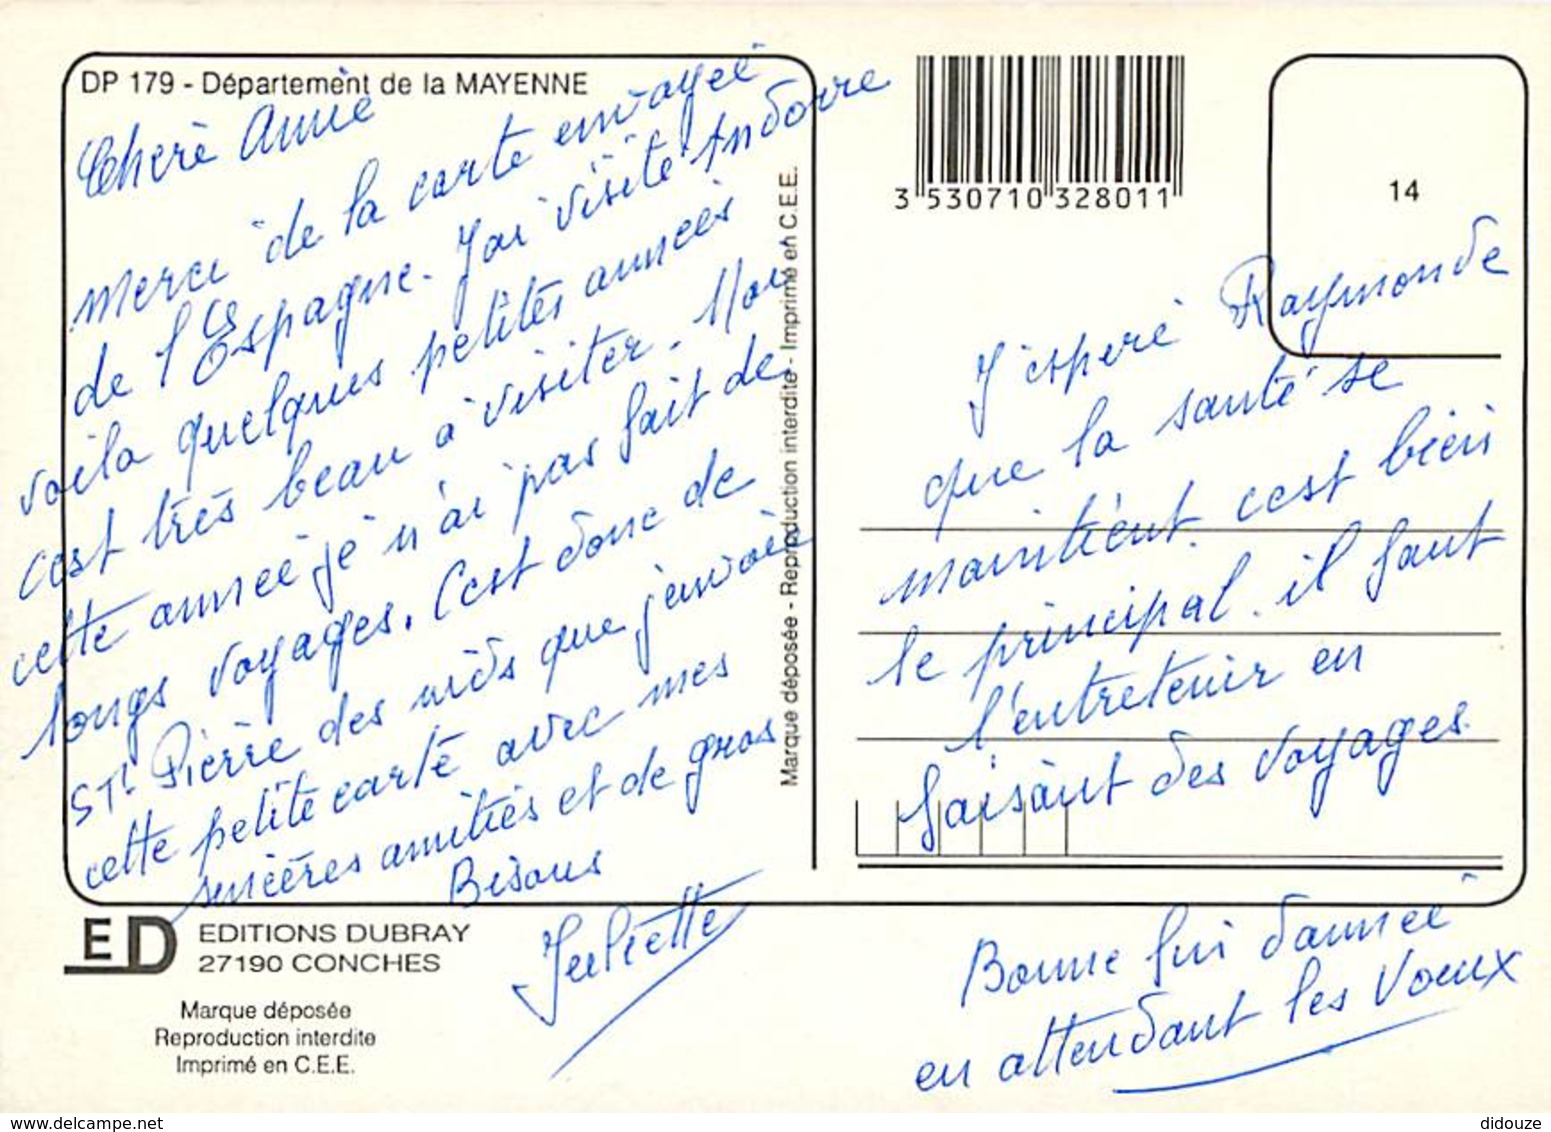 DP 179 - Département de la MAYENNE
Chère Annie
merci de la carte envoyée
de l'Espagne. J'ai visité Andorre
voila quelques petites années
c'est très beau à visiter. Moi
cette année je n'ai pas fait de
longs voyages. C'est donc de
St. Pierre des nids que j'envoie
cette petite carte avec mes
sincères amitiés et de gros
Bisous
Juliette
Marque déposée - Reproduction interdite - Imprimé en C.E.E.
3 530710 328011
14
J'espère Raymonde
que la santé se
maintient. c'est bien
le principal. il faut
l'entretenir en
faisant des voyages.
Bonne fin d'année
en attendant les Voeux
ED
EDITIONS DUBRAY
27190 CONCHES
Marque déposée
Reproduction interdite
Imprimé en C.E.E.
delcampe.net
didouze